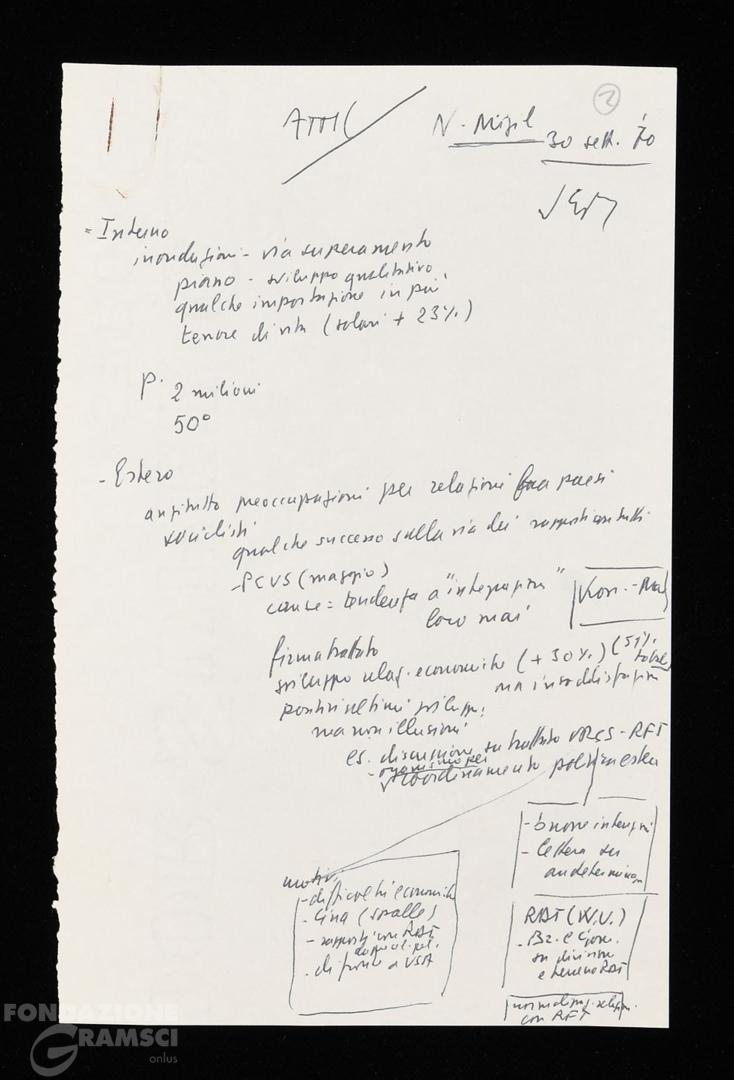 2
N. Mizil
30 sett. 70
= Interno
inondazioni - via superamento
piano - sviluppo qualitativo
qualche importazione in più
tenore di vita (salari + 23%)
P. 2 milioni
50°
- Estero
anzitutto preoccupazioni per relazioni fra paesi
socialisti
qualche successo sulla via dei rapporti con tutti
- PCUS (maggio)
cause = tendenza a "integrazione"
loro mai
firma trattato
sviluppo relaz. economiche (+ 30%) (51% totale)
ma insoddisfazioni
positivi ultimi sviluppi
ma non illusioni
es. discussione su trattato URSS - RFT
- organismo per
coordinamento polit. estera
- buone intenzioni
- lettera su
autodeterminaz.
motivi
- difficoltà economiche
- Cina (spalle)
- rapporti con RDT
- di fronte a USA
RDT (W.U.)
su divisione
e RDT
con RFT
FONDAZIONE
GRAMSCI
onlus